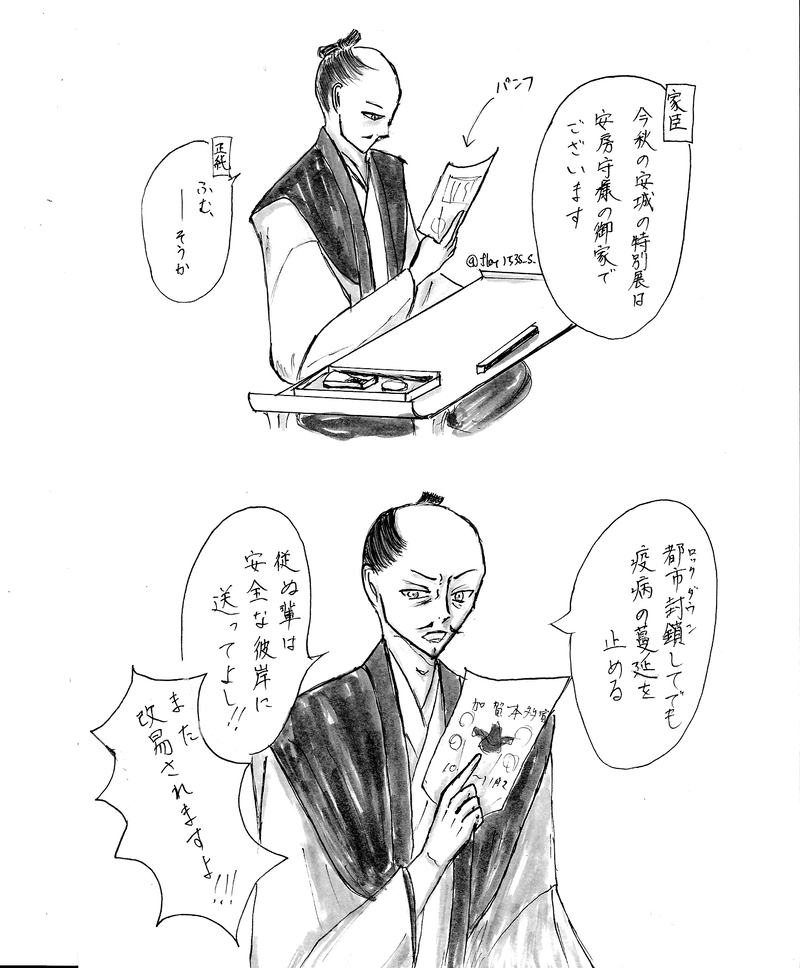 家臣
今秋の安城の特別展は
安房守様の御家で
ございます
パンフ
正純
ふむ、
──そうか
ロックダウン
都市封鎖してでも
疫病の蔓延を
止める
従ぬ輩は
安全な彼岸に
送ってよし!!
また
改易されますよ!!!
加賀本多家